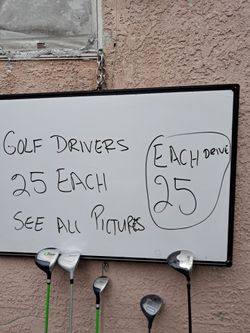 GOLF DRIVERS
25 EACH
SEE ALL PICTURES
EACH DRIVE
25